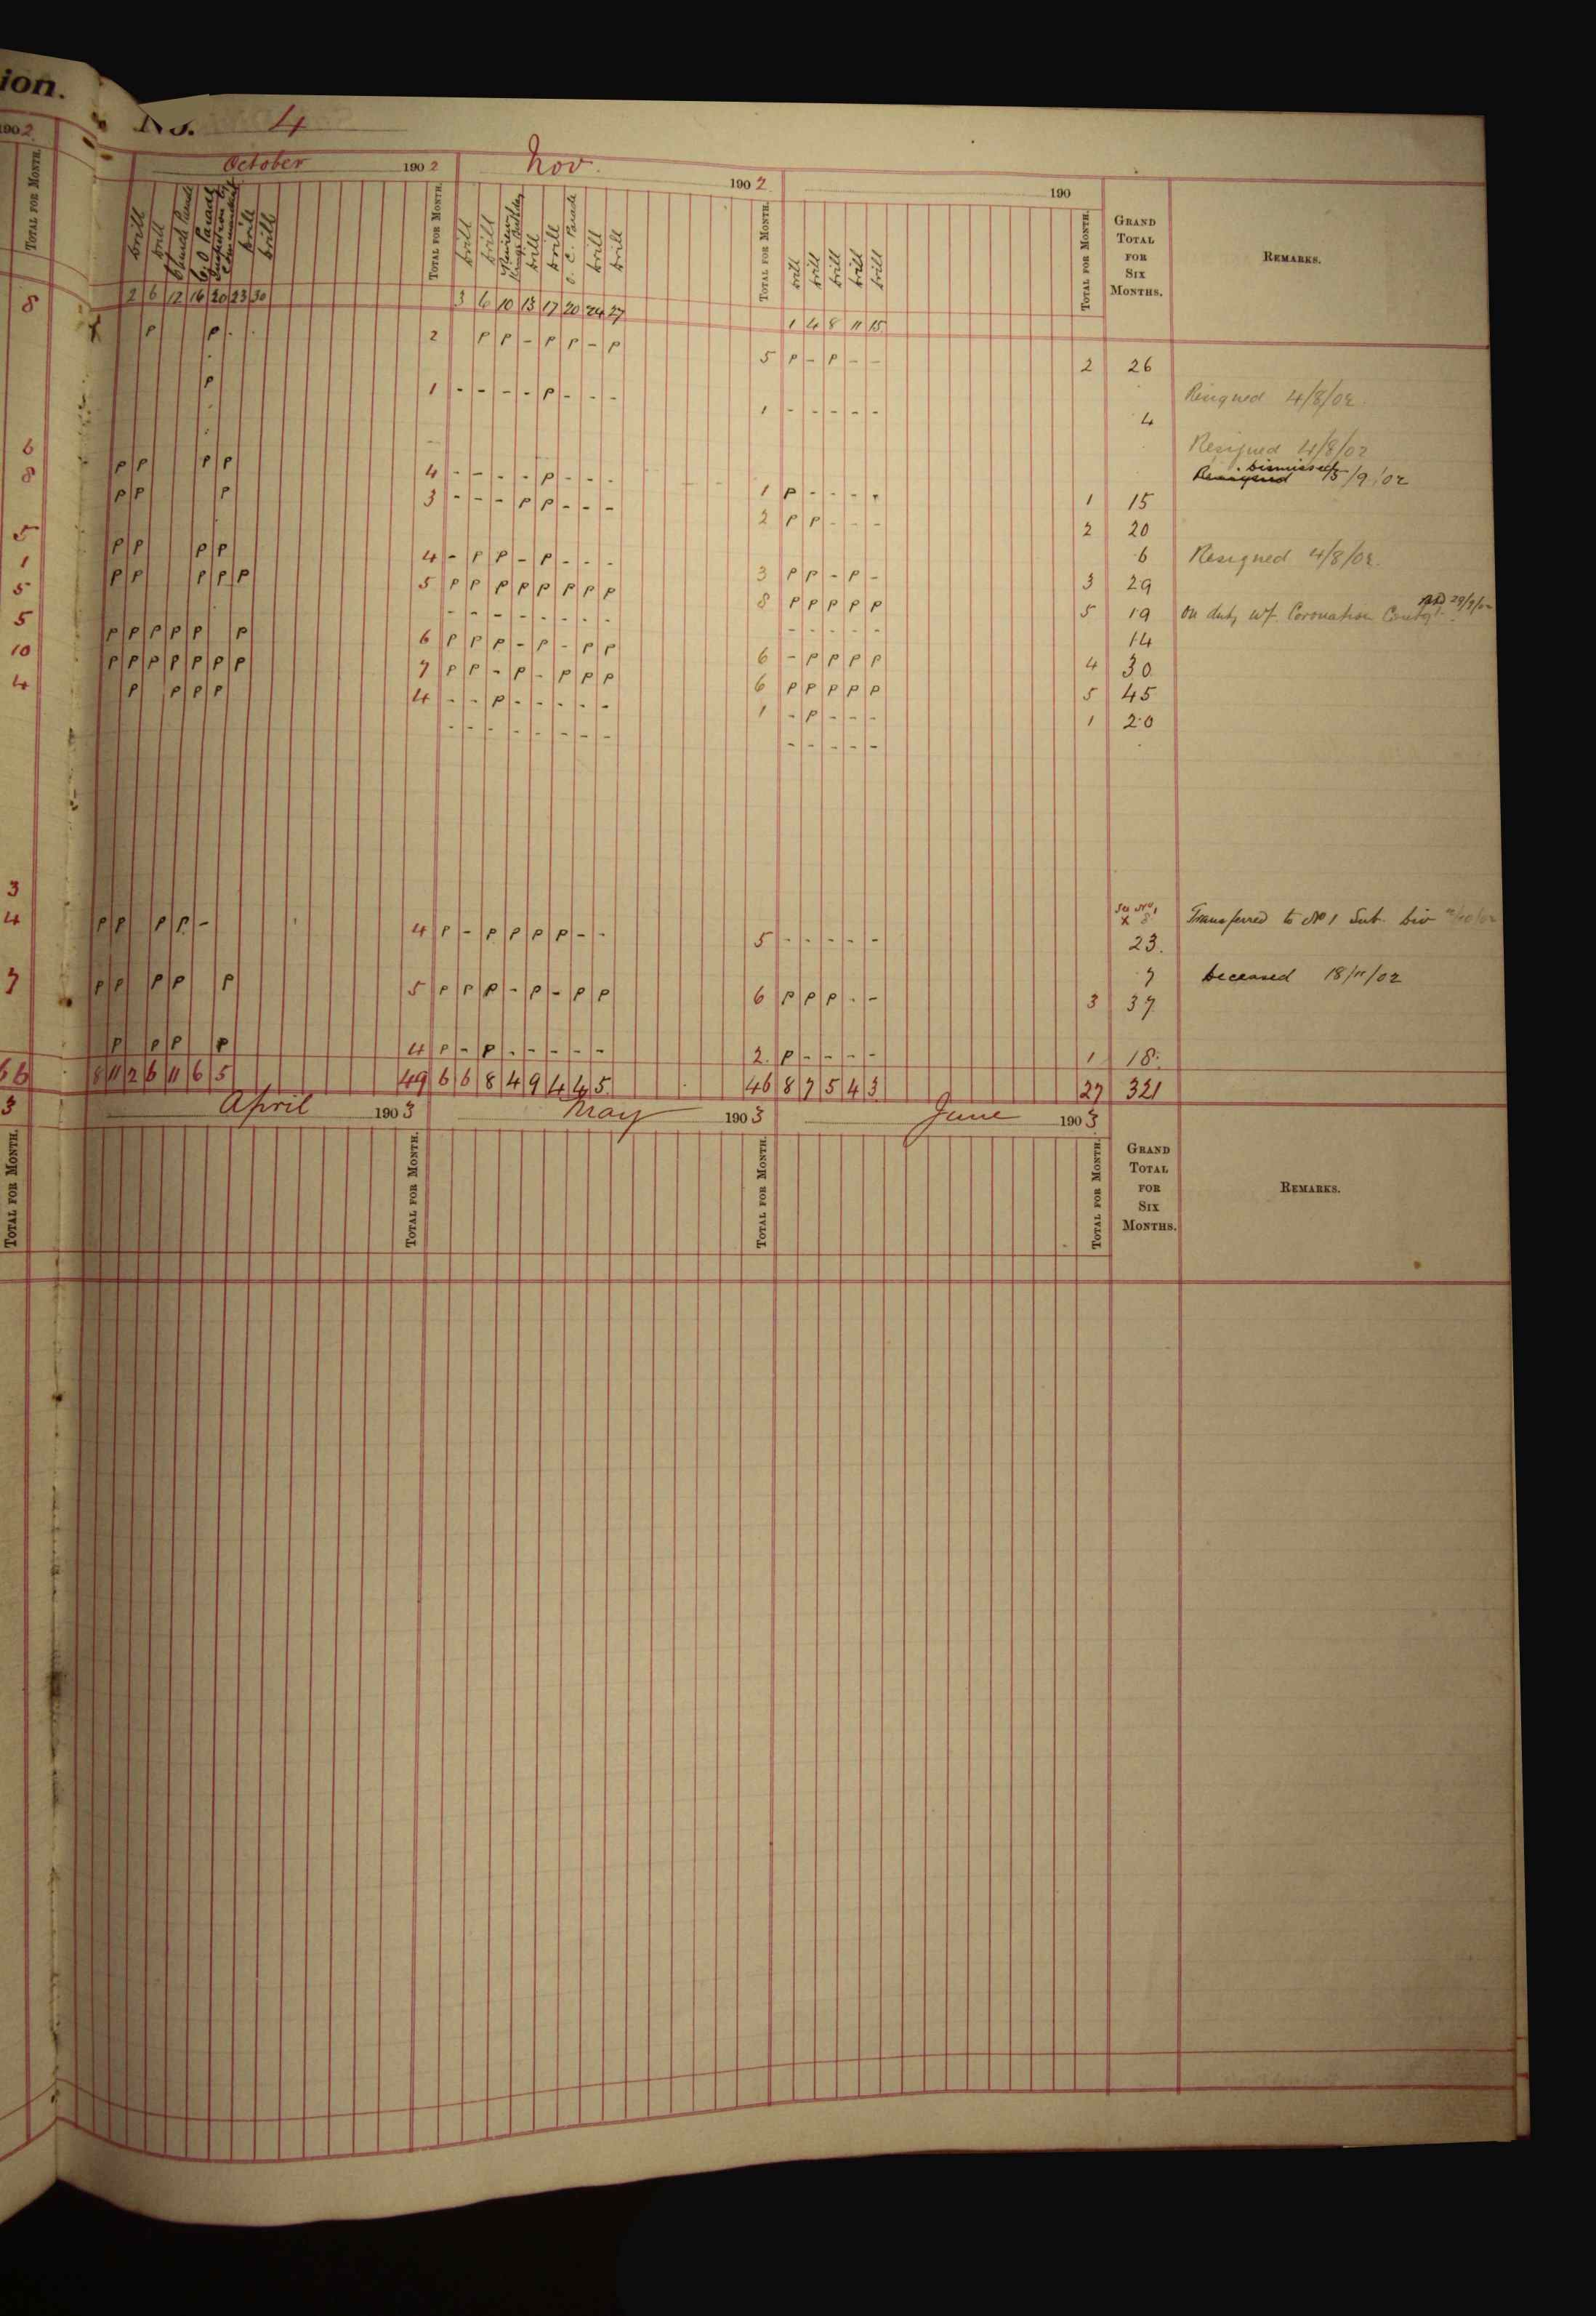 ion.
No. 4
1902
October 1902 Nov. 1902 190
TOTAL FOR MONTH.
Drill
Drill
Church Parade
C.O Parade
Inspection by Commandant
Drill
Drill
TOTAL FOR MONTH.
Drill
Drill
Review King's Birthday
Drill
Drill
O. C. Parade
Drill
Drill
TOTAL FOR MONTH.
Drill
Drill
Drill
Drill
Drill
TOTAL FOR MONTH.
GRAND TOTAL FOR SIX MONTHS.
REMARKS.
2 6 12 16 20 23 30 3 6 10 13 17 20 24 27 1 4 8 11 15
8 P P 2 P P - P P - P 5 P - P - - 2 26
Resigned 4/8/02
P 1 - - - - P - - - 1 - - - - - 4
Resigned 4/8/02
6 Resigned Dismissed 15/9/02
8 P P P P 4 - - - - P - - - 1 P - - - - 1 15
P P P 3 - - - P P - - - 2 P P - - - 2 20
5 6 Resigned 4/8/02
1 P P P P 4 - P P - P - - - 3 P P - P - 3 29
5 P P P P P 5 P P P P P P P P 8 P P P P P 5 19 on duty wt Coronation 29/9/02
5 - - - - - - - - - - - - - 14
10 P P P P P P 6 P P P - P - P P 6 - P P P P 4 30
4 P P P P P P P 7 P P - P - P P P 6 P P P P P 5 45
P P P P 4 - - P - - - - - 1 - P - - - 1 20
- - - - - - - - - - - - -
3 See No 1 x 8 Transferred to No 1 Sub. Div
4 P P P P - 4 P - P P P P - - 5 - - - - - 23.
7 Deceased 18/11/02
7 P P P P P 5 P P P - P - P P 6 P P P - - 3 37
P P P P 4 P - P - - - - - 2. P - - - - 1 18
66 8 11 2 6 11 6 5 49 6 6 8 4 9 4 4 5 46 8 7 5 4 3 27 321
3 April 1903 May 1903 June 1903
TOTAL FOR MONTH.
TOTAL FOR MONTH.
TOTAL FOR MONTH.
TOTAL FOR MONTH.
GRAND TOTAL FOR SIX MONTHS.
REMARKS.